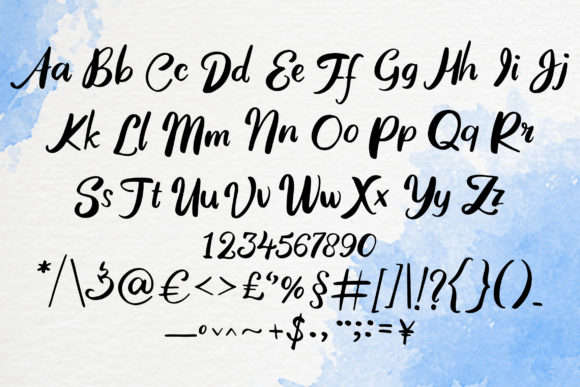 Aa Bb Cc Dd Ee Ff Gg Hh Ii Jj
Kk Ll Mm Nn Oo Pp Qq Rr
Ss Tt Uu Vv Ww Xx Yy Zz
1234567890
*/\@€<>£‘’%§#[]\!?{}()_
—°˅^~+$.,¨;:=¥